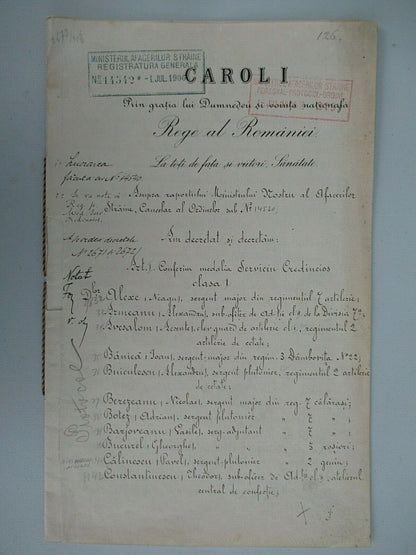 126.
MINISTERUL AFACERILOR STRĂINE
REGISTRATURA GENERALĂ
No 14542 * -1. JUL. 190
AFACERILOR STRĂINE
CAROL I
Prin grația lui Dumnedeu și voința națională
Rege al României
La toți de față și viitori, Sănătate
Lucrarea
No 14520.
Asupra raportului Ministrului Nostru al Afacerilor
Străine, Cancelar al Ordinelor sub No 14520,
Am decretat și decretăm:
A se vedea decretele
No 2671 & 2672/
Art. I Conferim medalia Serviciu Credincios
clasa I
Notat
D-lor
Alexe (Neagu), sergent major din regimentul 7 artilerie;
Armeanu (Alexandru), sub-ofițer de ad-ție cl. de la Divisia 7a;
Avesalom (Leonte), elev guard de artilerie cl. , regimentul 2
artilerie de cetate;
Bănică (Ioan), sergent-major din regim. 3 Dâmbovița No 22;
Buiculescu (Alexandru), sergent plutonier, regimentul 2 artilerie
de cetate;
Berezeanu (Nicolae), sergent major din reg. 7 călărași;
Botez (Adrian), sergent plutonier " 7 "
Barjoveanu (Vasile), serg-adjutant " 7 "
Bucurel (Gheorghe), " " 3 roșiori;
Călinescu (Pavel), sergent-plutonier " 2 geniu;
Constantinescu (Theodor), sub-ofițer de Ad-ție cl. , atelierul
central de confecție;